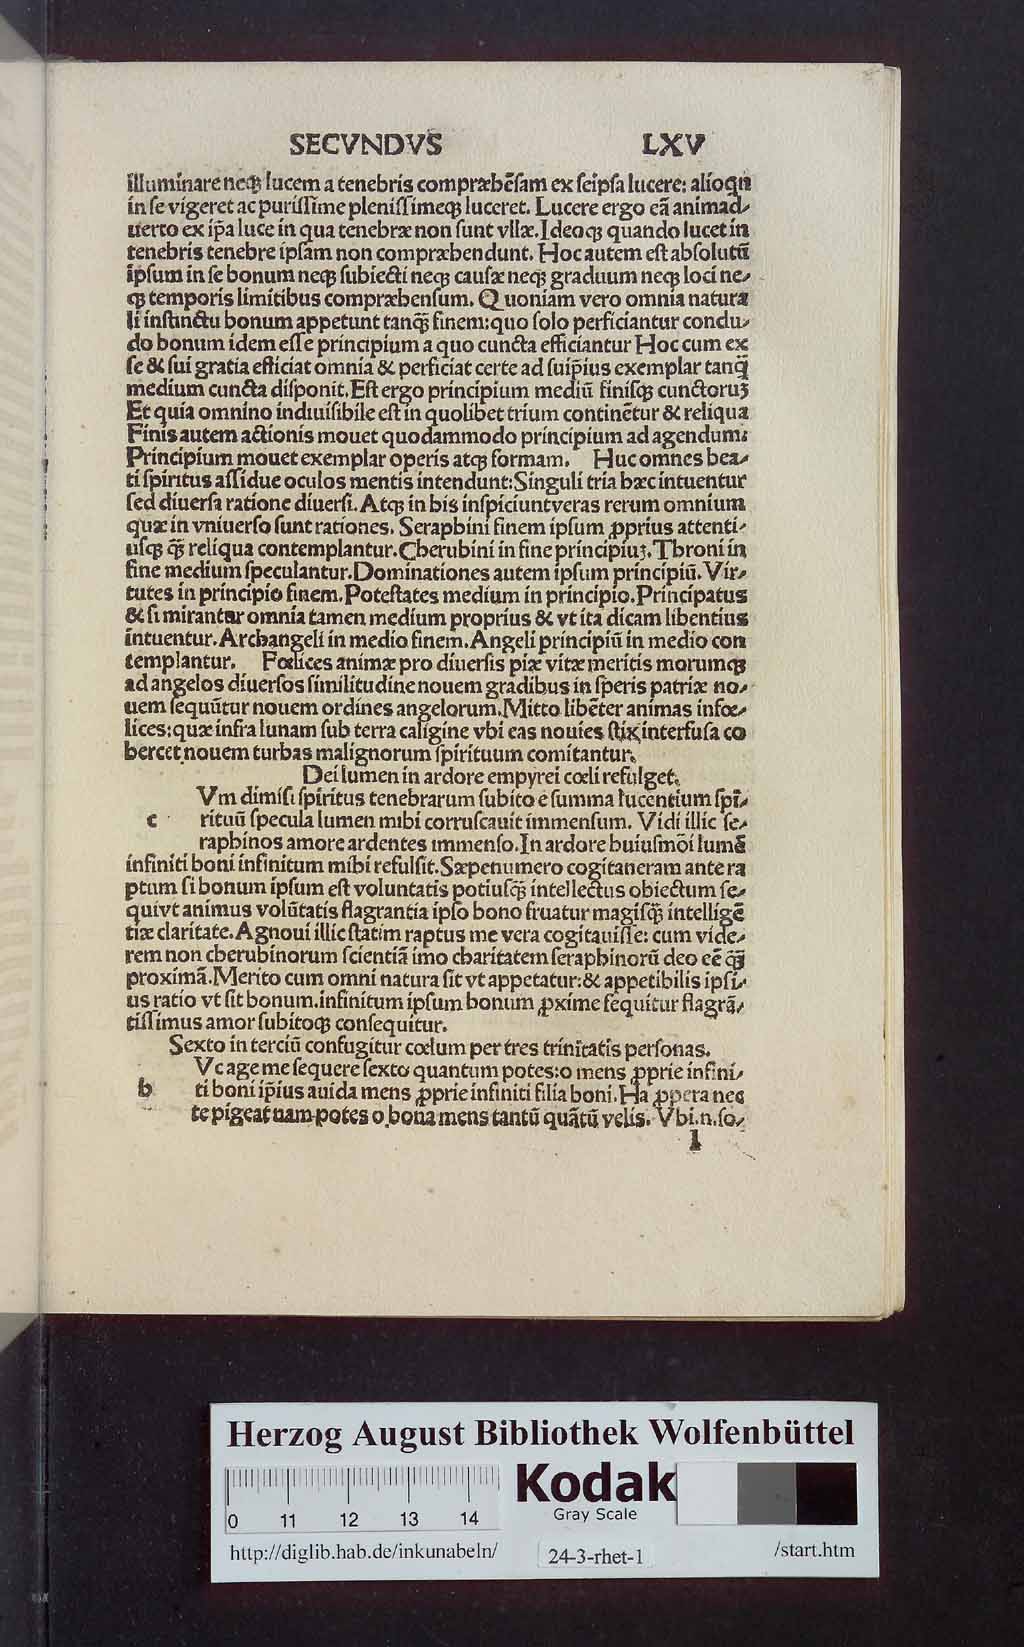 SECVNDVS LXV
illuminare neqꝫ lucem a tenebris compræhēsam ex seipsa lucere: alioqn
in se vigeret ac purissime plenissimeqꝫ luceret. Lucere ergo eā animad-
uerto ex ip̄a luce in qua tenebræ non sunt vllæ. Ideoqꝫ quando lucet in
tenebris tenebre ipsam non compræhendunt. Hoc autem est absolutū
ipsum in se bonum neqꝫ subiecti neqꝫ causæ neqꝫ graduum neqꝫ loci ne-
qꝫ temporis limitibus compræhensum. Quoniam vero omnia natura
li instinctu bonum appetunt tanqꝫ̄ finem: quo solo perficiantur condu-
do bonum idem esse principium a quo cuncta efficiantur Hoc cum ex
se & sui gratia efficiat omnia & perficiat certe ad suip̄ius exemplar tanq̄ꝫ
medium cuncta disponit. Est ergo principium mediū finisqꝫ cunctoruꝫ
Et quia omnino indiuisibile est in quolibet trium continētur & reliqua
Finis autem actionis mouet quodammodo principium ad agendum:
Principium mouet exemplar operis atqꝫ formam. Huc omnes bea-
ti spiritus assidue oculos mentis intendunt: Singuli tria hæc intuentur
sed diuersa ratione diuersi. Atqꝫ in his inspiciunt veras rerum omnium
quæ in vniuerso sunt rationes. Seraphini finem ipsum ꝓprius attenti-
usqꝫ qꝫ̄ reliqua contemplantur. Cherubini in fine principiuꝫ. Throni in
fine medium speculantur. Dominationes autem ipsum principiū. Vir-
tutes in principio finem. Potestates medium in principio. Principatus
& si mirantur omnia tamen medium proprius & vt ita dicam libentius
intuentur. Archangeli in medio finem. Angeli principiū in medio con
templantur. Fœlices animæ pro diuersis piæ vitæ meritis morumqꝫ
ad angelos diuersos similitudine nouem gradibus in speris patriæ no-
uem sequūtur nouem ordines angelorum. Mitto libēter animas infœ-
lices: quæ infra lunam sub terra caligine vbi eas nouies stix interfusa co
hercet nouem turbas malignorum spirituum comitantur.
Dei lumen in ardore empyrei cœli refulget.
Vm dimisi spiritus tenebrarum subito e summa lucentium spī-
c rituū specula lumen mihi corruscauit immensum. Vidi illic se-
raphinos amore ardentes immenso. In ardore huiusmōi lumē
infiniti boni infinitum mihi refulsit. Sæpenumero cogitaneram ante ra
ptum si bonum ipsum est voluntatis potiusqꝫ̄ intellectus obiectum se-
qui vt animus volūtatis flagrantia ipso bono fruatur magisqꝫ̄ intelligē
tiæ claritate. Agnoui illic statim raptus me vera cogitauisse: cum vide-
rem non cherubinorum scientiā imo charitatem seraphinorū deo eē qꝫ̄
proximā. Merito cum omni natura sit vt appetatur: & appetibilis ipsi-
us ratio vt sit bonum. infinitum ipsum bonum ꝓxime sequitur flagrā-
tissimus amor subitoqꝫ consequitur.
Sexto in terciū confugitur cœlum per tres trinitatis personas.
Vc age me sequere sexto quantum potes: o mens ꝓprie infini-
h ti boni ip̄ius auida mens ꝓprie infiniti filia boni. Ha ꝓpera nec
te pigeat nam potes o bona mens tantū quātū velis. Vbi .n. so-
l
Herzog August Bibliothek Wolfenbüttel
0 11 12 13 14
Kodak
Gray Scale
http://diglib.hab.de/inkunabeln/ 24-3-rhet-1 /start.htm